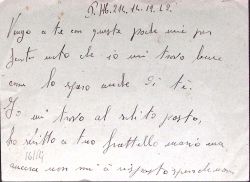 P. M. 211. 14.12.42.
Vengo a te con queste poche mie per
farti noto che io mi trovo bene
come lo spero anche di te.
Io mi trovo al solito posto,
ho scritto a tuo frattello mario ma
ancora non mi à risposto spero che non